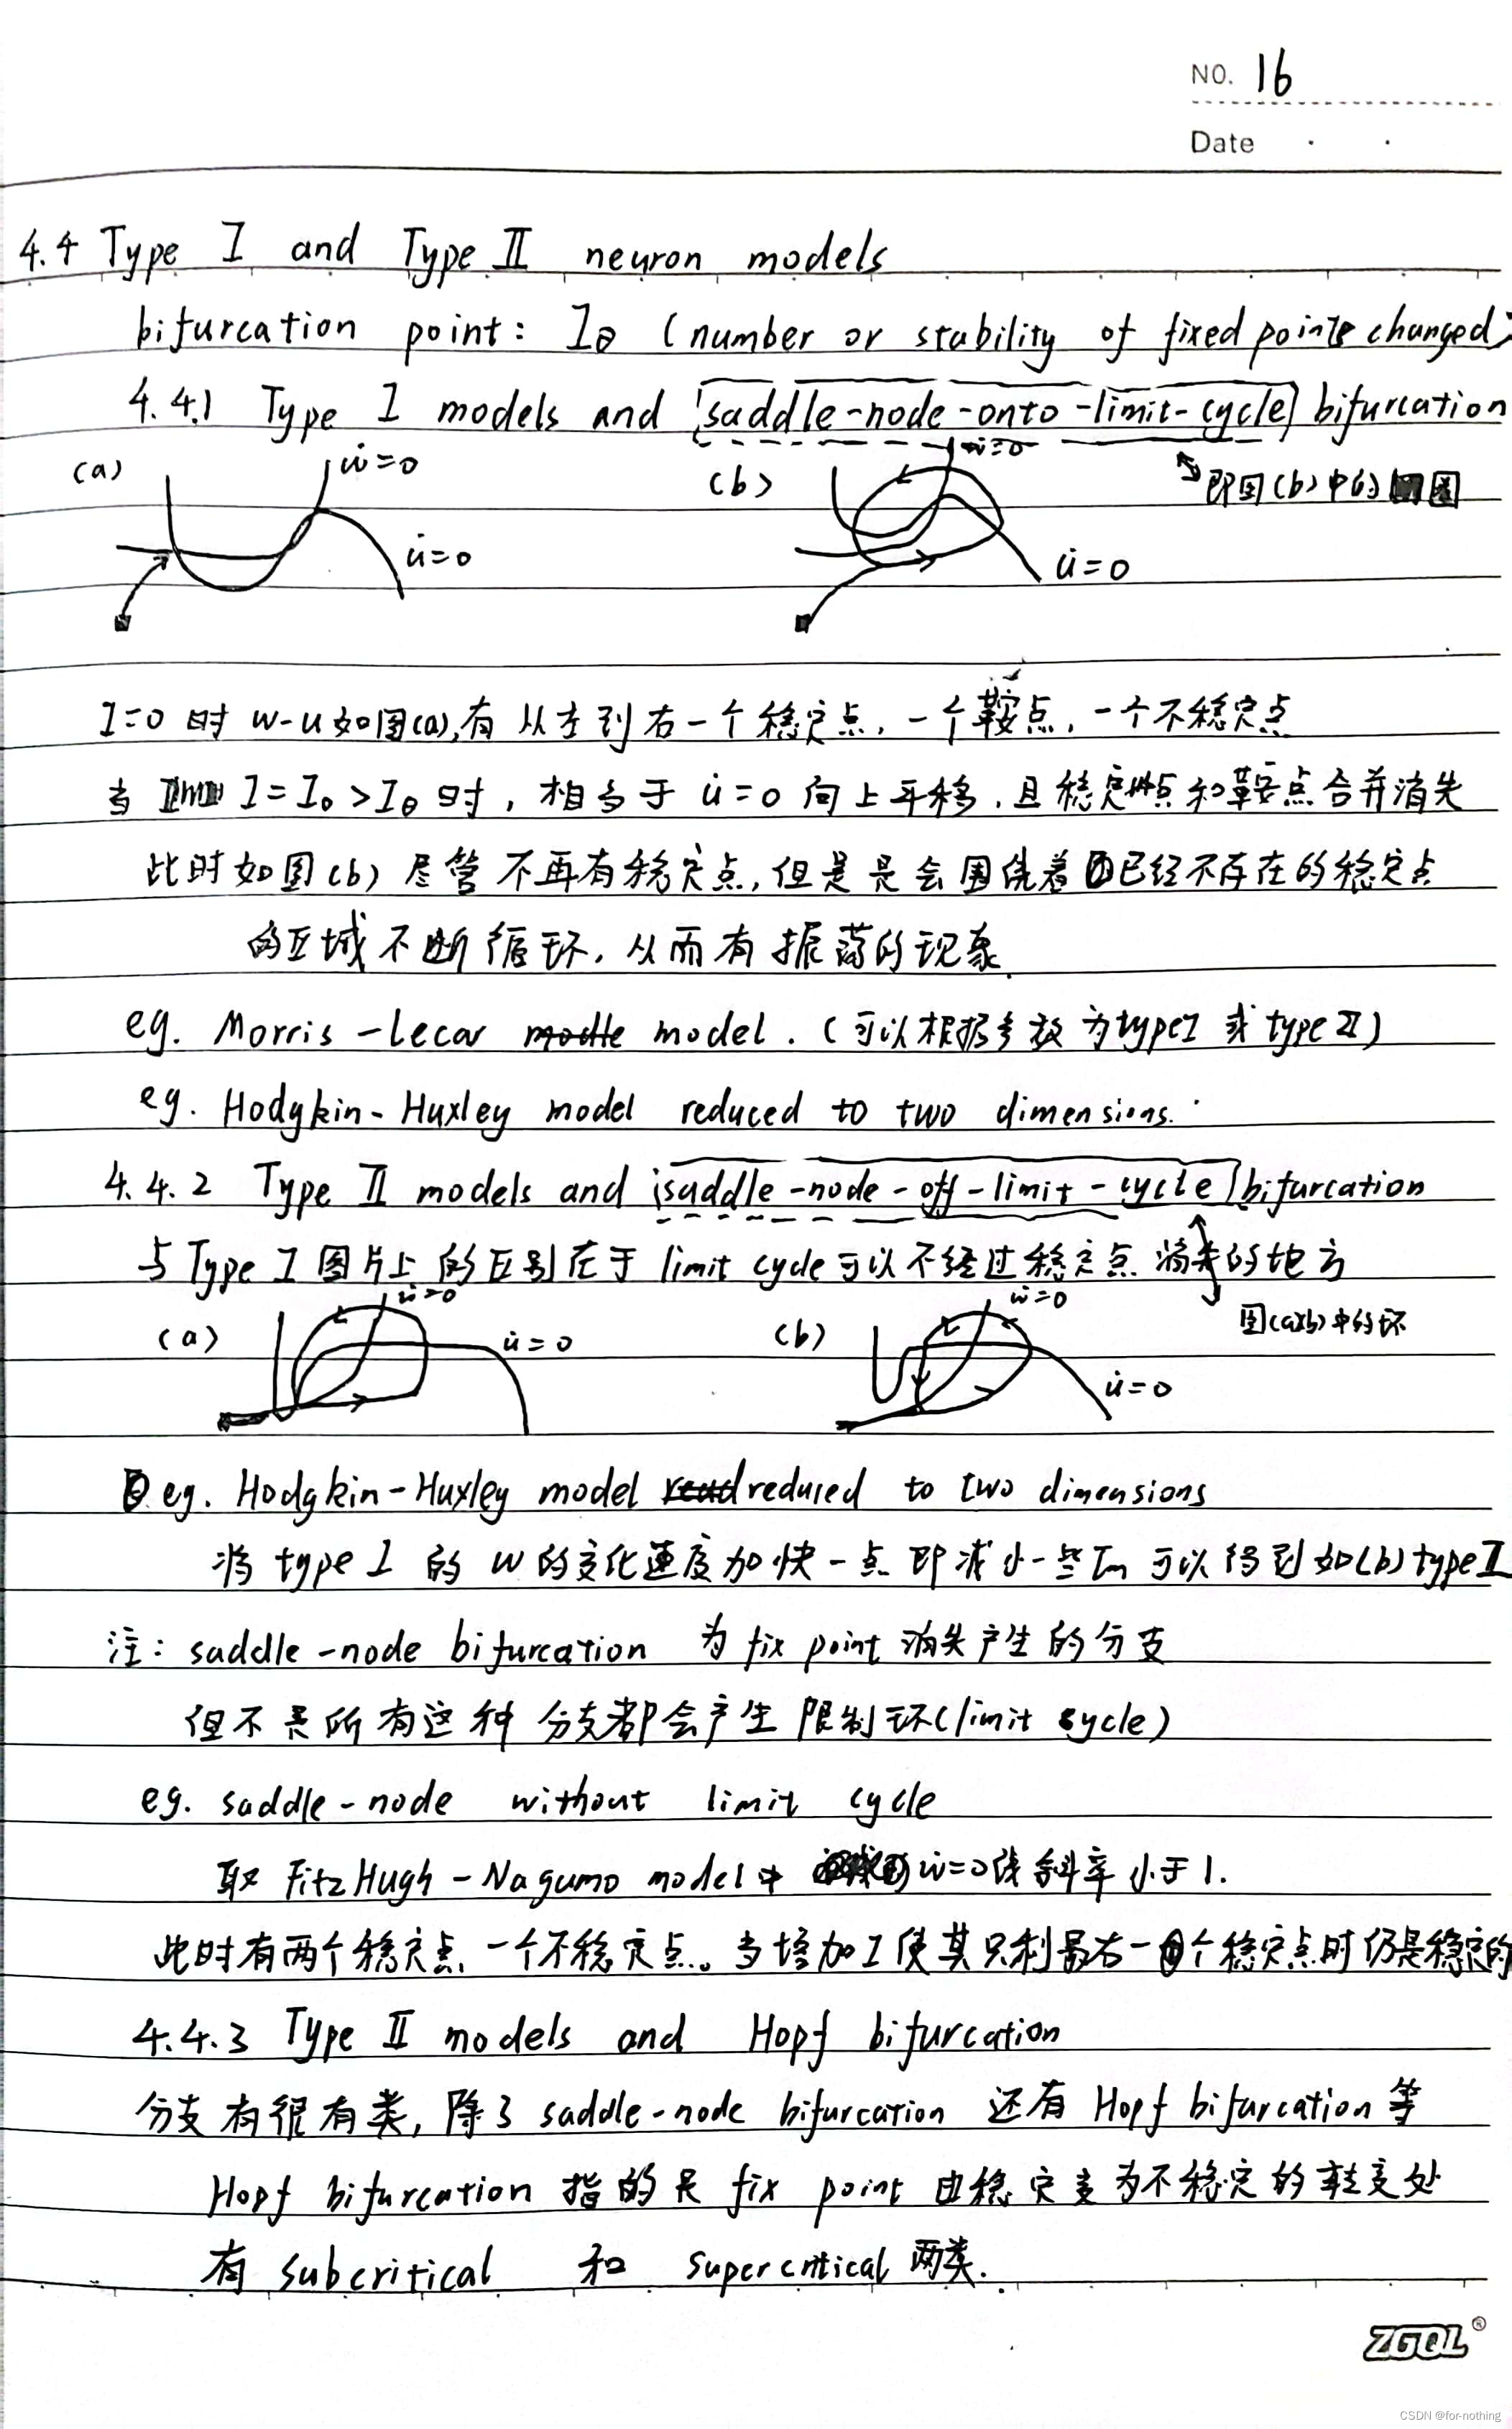 NO. 16
Date
4.4 Type I and Type II neuron models
bifurcation point: Iθ (number or stability of fixed points changed)
4.4.1 Type I models and saddle-node-onto-limit-cycle bifurcation
(a) ẇ=0 u̇=0
(b) ẇ=0 u̇=0
即图(b)中的圈
I=0 时 w-u如图(a),有从左到右一个稳定点,一个鞍点,一个不稳定点
当 I=I₀>Iθ时,相当于 u̇=0向上平移,且稳定点和鞍点合并消失
此时如图(b) 尽管不再有稳定点,但是是会围绕着已经不存在的稳定点
的区域不断循环,从而有振荡的现象
eg. Morris-Lecar model. (可以根据参数为typeI 或 typeII)
eg. Hodgkin-Huxley model reduced to two dimensions.
4.4.2 Type II models and saddle-node-off-limit-cycle bifurcation
与Type I 图片上的区别在于 limit cycle可以不经过稳定点消失的地方
(a) ẇ=0 u̇=0
(b) ẇ=0 u̇=0
图(a)(b)中的环
eg. Hodgkin-Huxley model reduced to two dimensions
将 type I 的 w的变化速度加快一点 即减小一些 可以得到如(b) type
注: saddle-node bifurcation 为 fix point 消失产生的分支
但不是所有这种分支都会产生限制环(limit cycle)
eg. saddle-node without limit cycle
取 FitzHugh-Nagumo model中 ẇ=0线斜率小于1.
此时有两个稳定点 一个不稳定点。当增加I使其只剩最右一个稳定点时仍是稳定的
4.4.3 Type II models and Hopf bifurcation
分支有很有类,除了 saddle-node bifurcation 还有 Hopf bifurcation等
Hopf bifurcation 指的是 fix point 由稳定变为不稳定的转变处
有 subcritical 和 supercritical 两类.
ZGQL®
CSDN @for-nothing